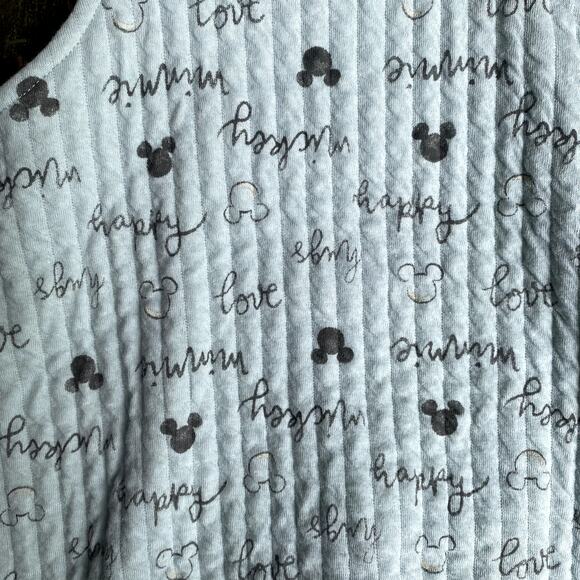 love love
minnie minnie
mickey mickey
mickey
happy happy
hugs hugs
love love
minnie minnie
mickey mickey
mickey
happy happy
hugs hugs
love love